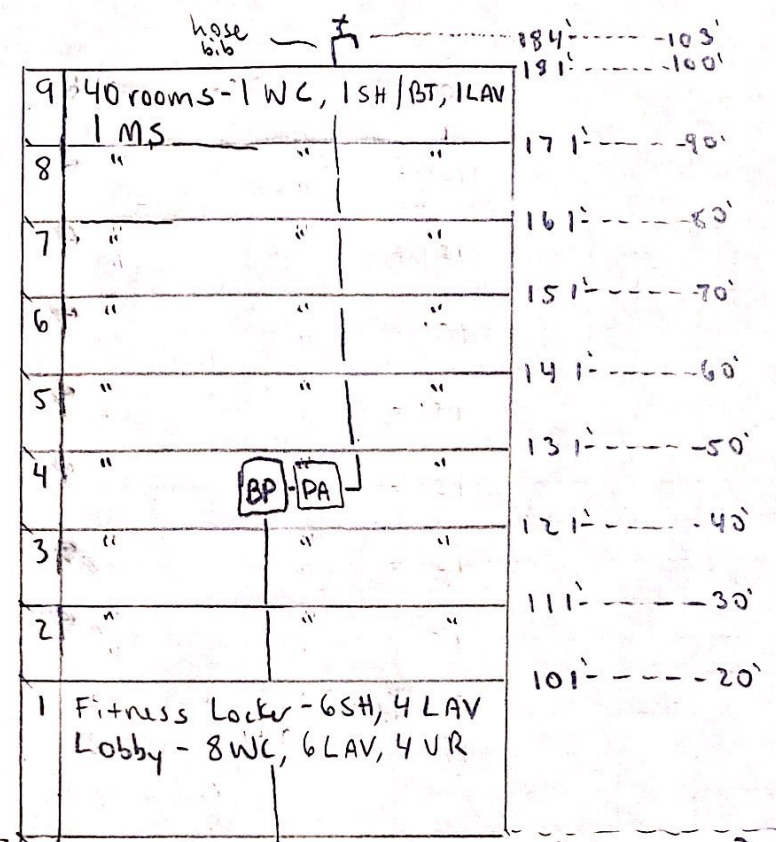 hose bib 184' 103'
181' 100'
9 40 rooms - 1 WC, 1 SH/BT, 1 LAV
1 MS
8 " " " 171' 90'
7 " " " 161' 80'
6 " " " 151' 70'
5 " " " 141' 60'
4 " " " 131' 50'
BP - PA
3 " " " 121' 40'
2 " " " 111' 30'
101' 20'
1 Fitness Locker - 6 SH, 4 LAV
Lobby - 8 WC, 6 LAV, 4 UR